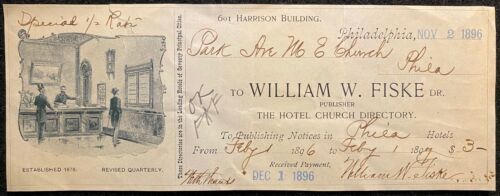 601 HARRISON BUILDING.
Special ½ Rate
Philadelphia, NOV 2 1896
Park Ave M E Church
Phila
TO WILLIAM W. FISKE DR.
PUBLISHER
THE HOTEL CHURCH DIRECTORY.
To Publishing Notices in Phila Hotels
From Feby 1 1896 to Feby 1 1897 $3-
Received Payment,
DEC 1 1896
William W. Fiske
With thanks
ESTABLISHED 1878. REVISED QUARTERLY.
These Directories are in the Leading Hotels of Seventy Principal Cities.
OK